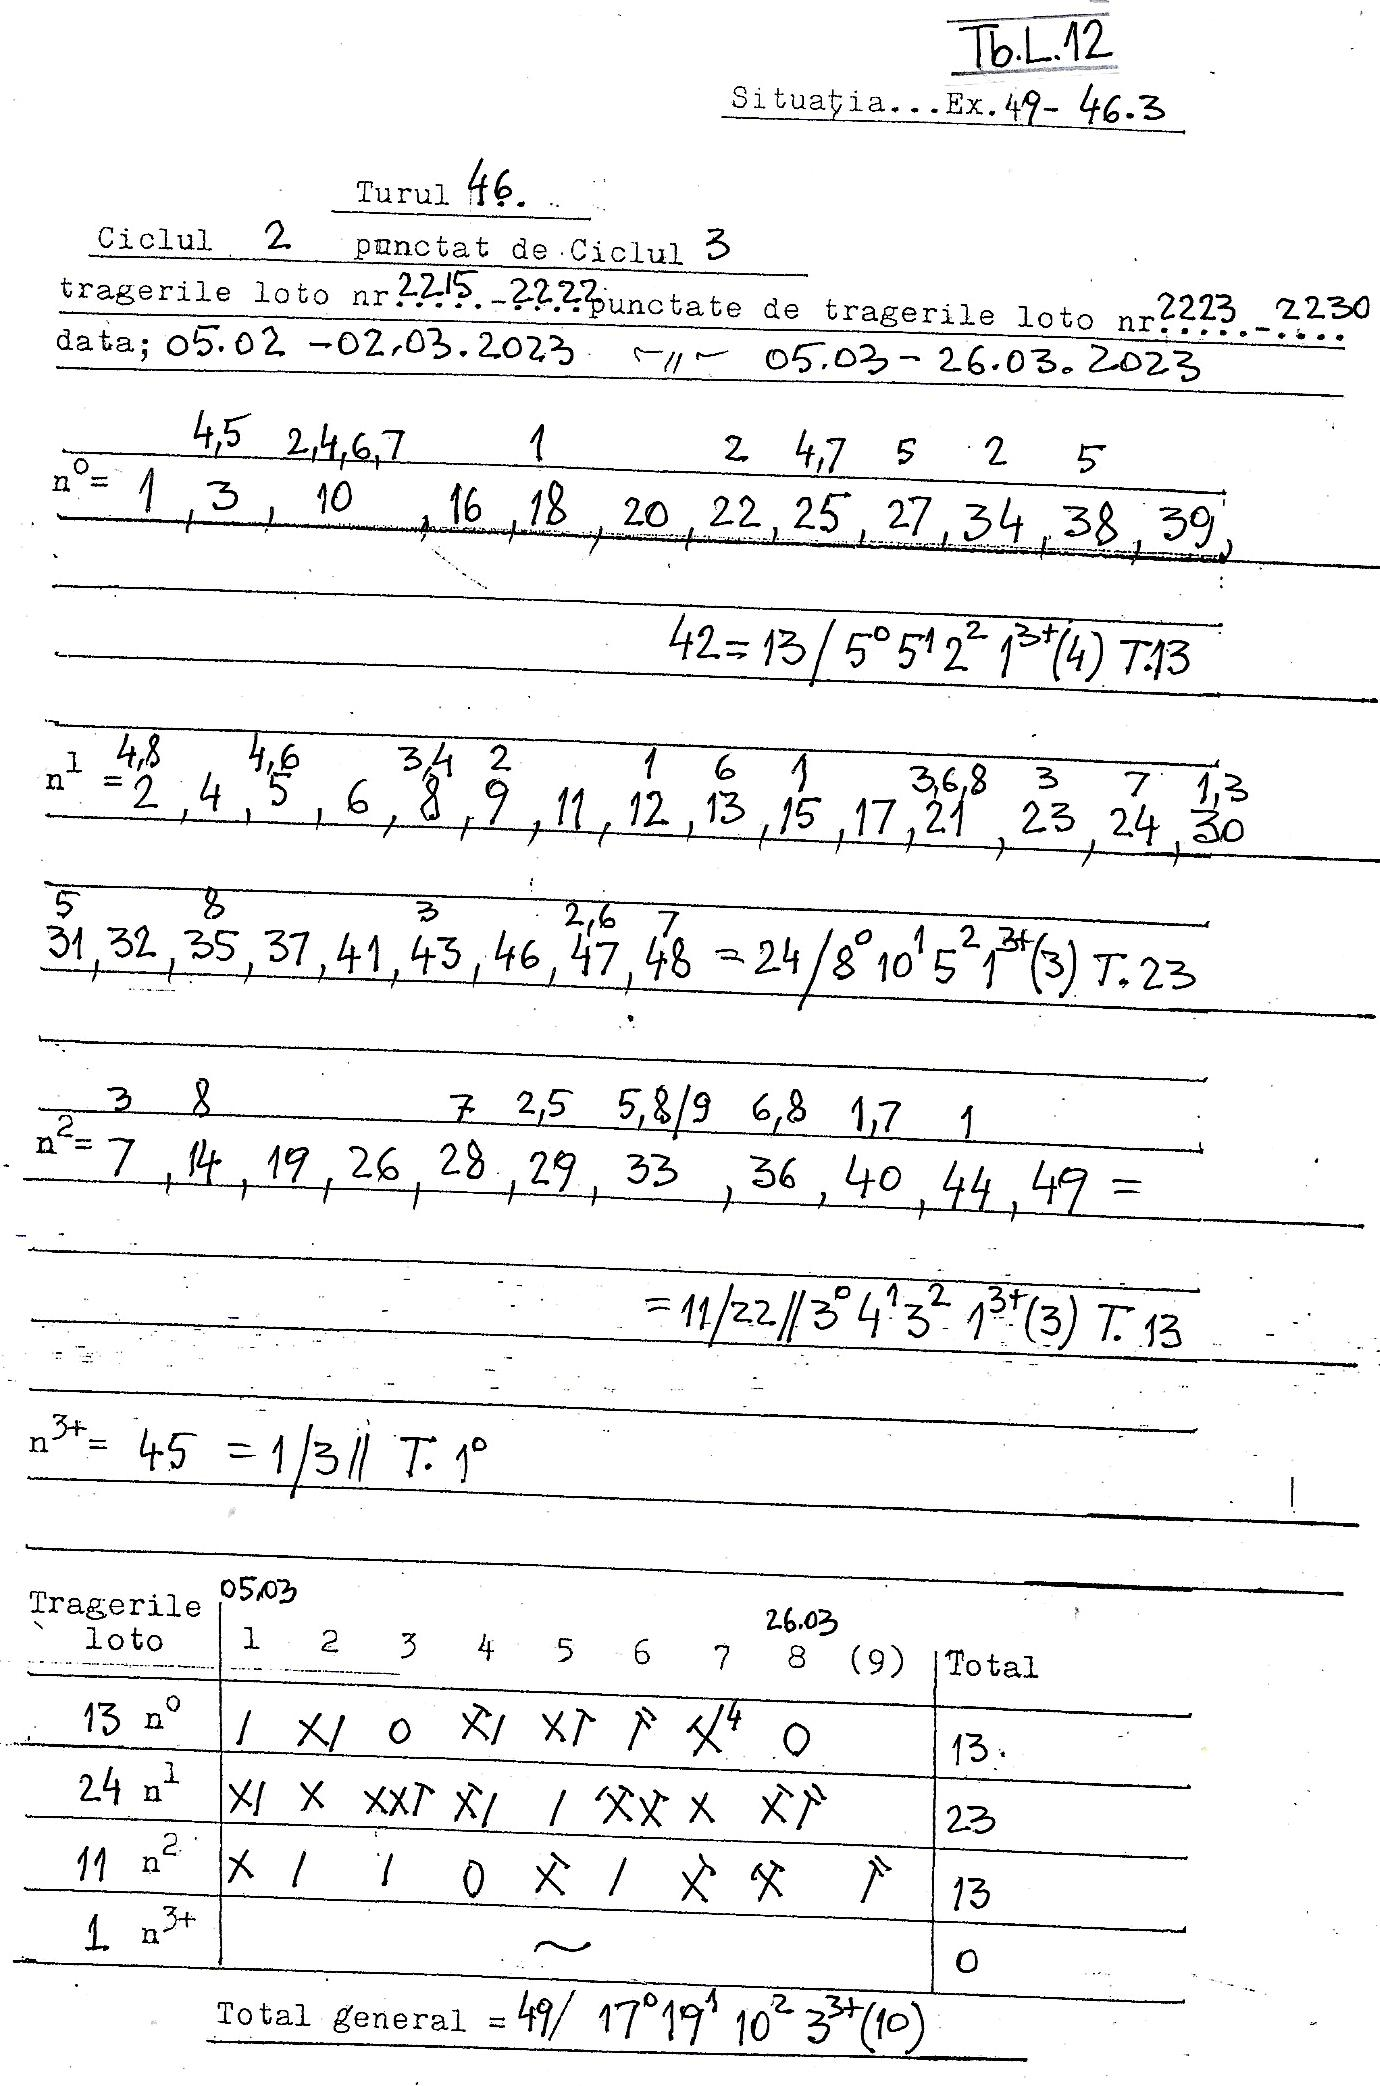 Tb.L.12
Situația...Ex.49- 46.3
Turul 46.
Ciclul 2 punctat de Ciclul 3
tragerile loto nr 2215 - 2222 punctate de tragerile loto nr 2223 - 2230
data; 05.02 - 02.03.2023 ~//~ 05.03 - 26.03.2023
4,5 2,4,6,7 1 2 4,7 5 2 5
n⁰= 1, 3, 10, 16, 18, 20, 22, 25, 27, 34, 38, 39,
42=13/5⁰ 5¹ 2² 1³⁺(4) T.13
4,8 4,6 3,4 2 1 6 1 3,6,8 3 7 1,3
n¹ =2, 4, 5, 6, 8, 9, 11, 12, 13, 15, 17, 21, 23, 24, 30
5 8 3 2,6 7
31, 32, 35, 37, 41, 43, 46, 47, 48 =24/8⁰ 10¹ 5² 1³⁺(3) T.23
3 8 7 2,5 5,8/9 6,8 1,7 1
n²= 7, 14, 19, 26, 28, 29, 33, 36, 40, 44, 49 =
=11/22//3⁰ 4¹ 3² 1³⁺(3) T.13
n³⁺= 45 =1/3// T. 1⁰
05.03
Tragerile 26.03
loto 1 2 3 4 5 6 7 8 (9) Total
13 n⁰ 0 4 0 13.
24 n¹ 23
11 n² 0 13
1 n³⁺ ~ 0
Total general =49/ 17⁰ 19¹ 10² 3³⁺(10)